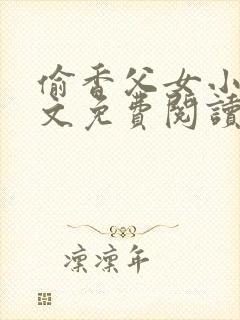 偷香父女小
文免費閱讀
凜凜年